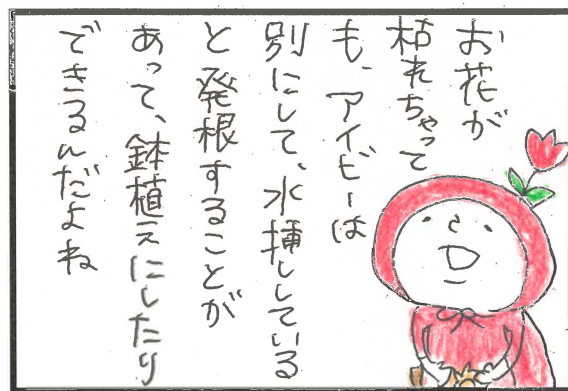 お花が
枯れちゃって
も、アイビーは
別にして、水挿ししている
と発根することが
あって、鉢植えにしたり
できるんだよね